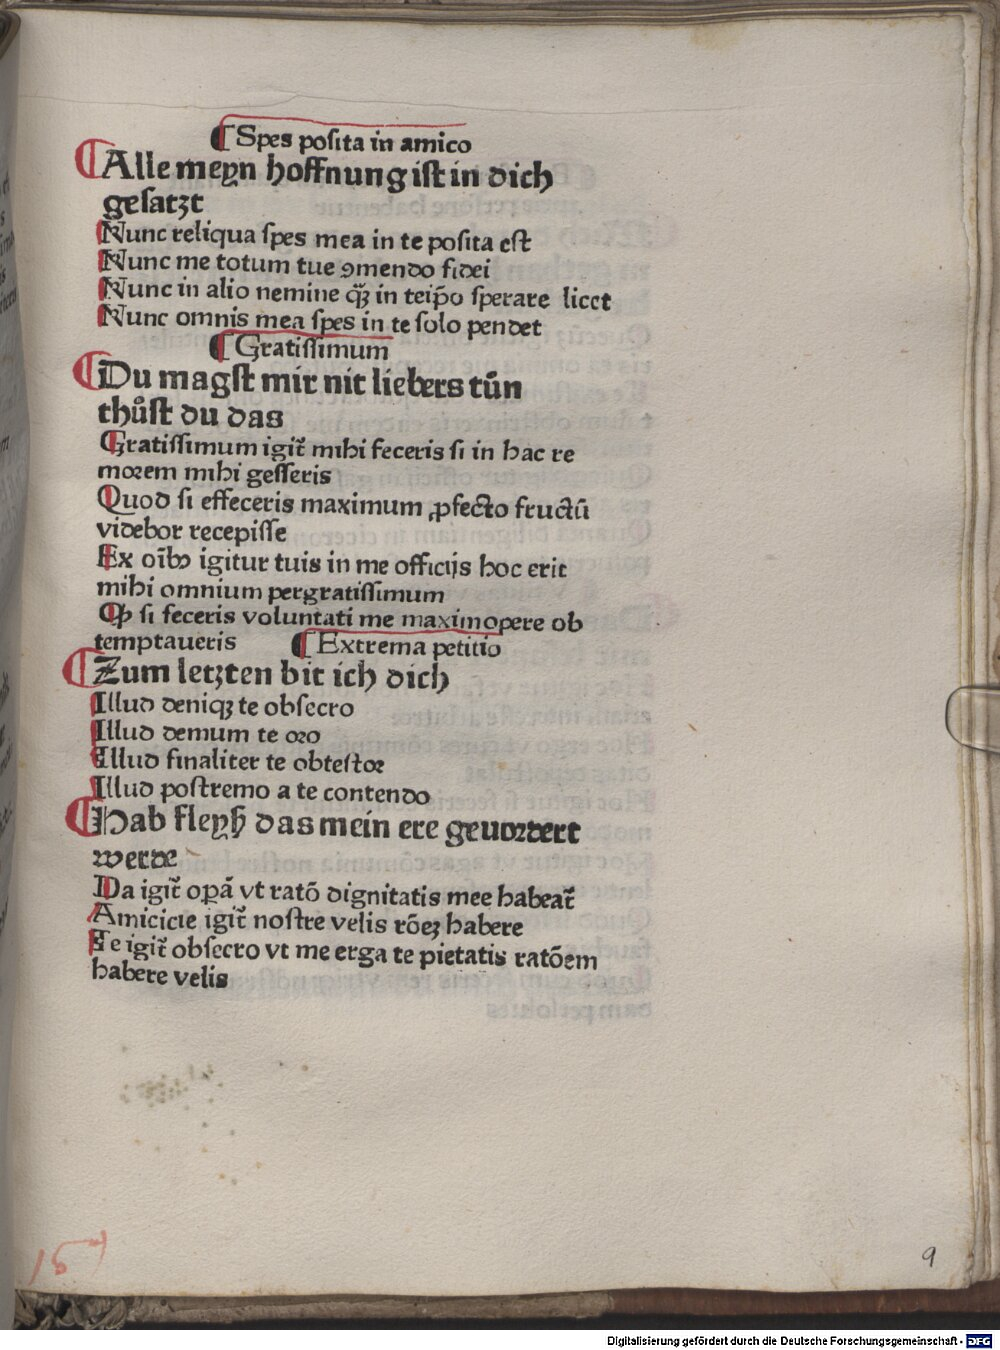 ¶ Spes posita in amico
¶ Alle meyn hoffnung ist in dich
gesatzt
Nunc reliqua spes mea in te posita est
Nunc me totum tue ꝯmendo fidei
Nunc in alio nemine qꝫ̃ in teip̃o sperare licet
Nunc omnis mea spes in te solo pendet
¶ Gratissimum
¶ Du magst mir nit liebers tůn
thůst du das
Gratissimum igit̃ mihi feceris si in hac re
morem mihi gesseris
Quod si effeceris maximum ꝓfecto fructū
videbor recepisse
Ex oīb9 igitur tuis in me officijs hoc erit
mihi omnium pergratissimum
Qꝙ si feceris voluntati me maximopere ob
temptaueris ¶ Extrema petitio
¶ Zum letzten bit ich dich
Illud deniqꝫ te obsecro
Illud demum te oro
Illud finaliter te obtestor
Illud postremo a te contendo
¶ Hab fleyß das mein ere geuordert
werde
Da igit̃ oꝑā vt ratō dignitatis mee habeat̃
Amicicie igit̃ nostre velis rōeꝫ habere
Te igit̃ obsecro vt me erga te pietatis ratōem
habere velis
15
9
Digitalisierung gefördert durch die Deutsche Forschungsgemeinschaft - DFG